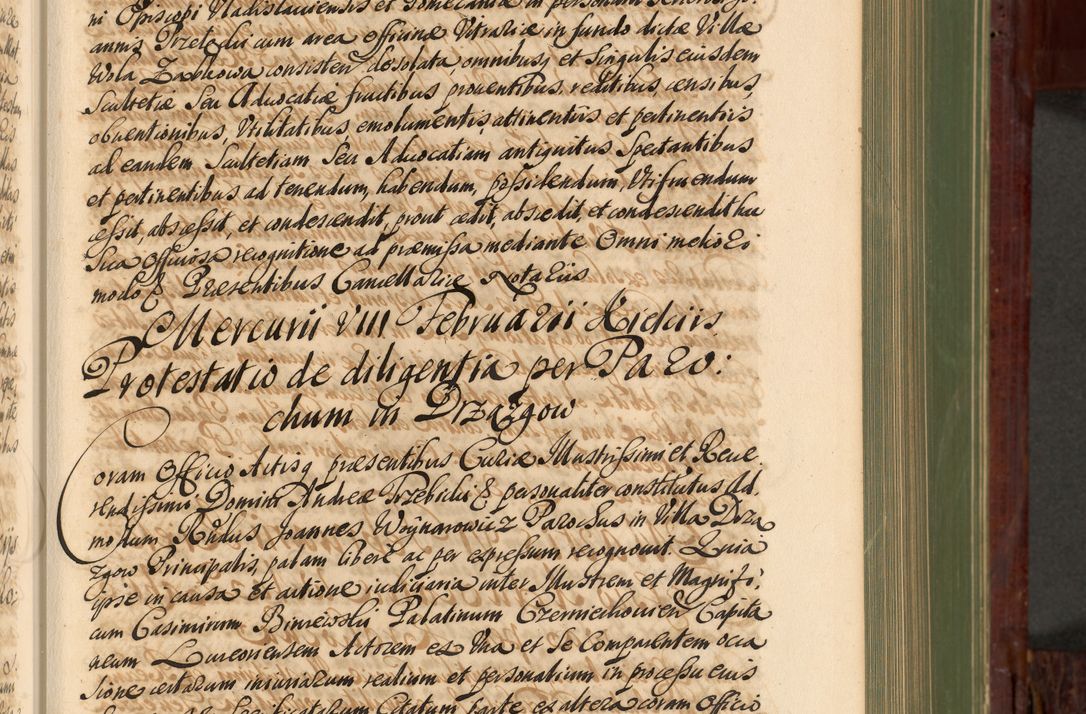 ni Episcopi Vladislaviensis et Pomeraniæ in personam
annis Przetocki cum area officinæ Vitrariæ in fundo dictæ Villæ
Wola Zabkowa consisten desolata, omnibus et Singulis eiusdem
Scultetiæ Seu Advocatiæ fructibus, proventibus, reditibus, censibus,
obventionibus, Vtilitatibus, emolumentis, attinentiis et pertinentiis
ad eandem Scultetiam Seu Advocatiam antiquitus Spectantibus
et pertinentibus ad tenendum, habendum, possidendum, Vtifruendum
cessit, abscessit, et condescendit, prout cedit, abscedit, et condescendit hac
Sua officiosa recognitione ad præmissa mediante Omni meliori
modo & Præsentibus Cancellariæ Notariis
Mercurii VIII Februarii Kielciis
Protestatio de diligentia per Paro:
chum in Drzazgow
Coram Officio Actisq præsentibus Curiæ Illustrissimi et Reve
rendissimi Domini Andreæ Trzebicki & personaliter constitutus Ad.
modum Rndus Joannes Woynarowicz Parochus in Villa Drza
zgow Principalis, palam libere ac per expressum recognovit. Quia
ipse in causa et actione iudiciaria inter Illustrem et Magnifi:
cum Casimirum Biniewski Palatinum Czerniechovien Capita
neum Luceoriensem Actorem ex Vna et Se Comparentem occa
sione certarum iniuriarum realium et personalium in processu eius
Citatum Parte ex altera coram Officio